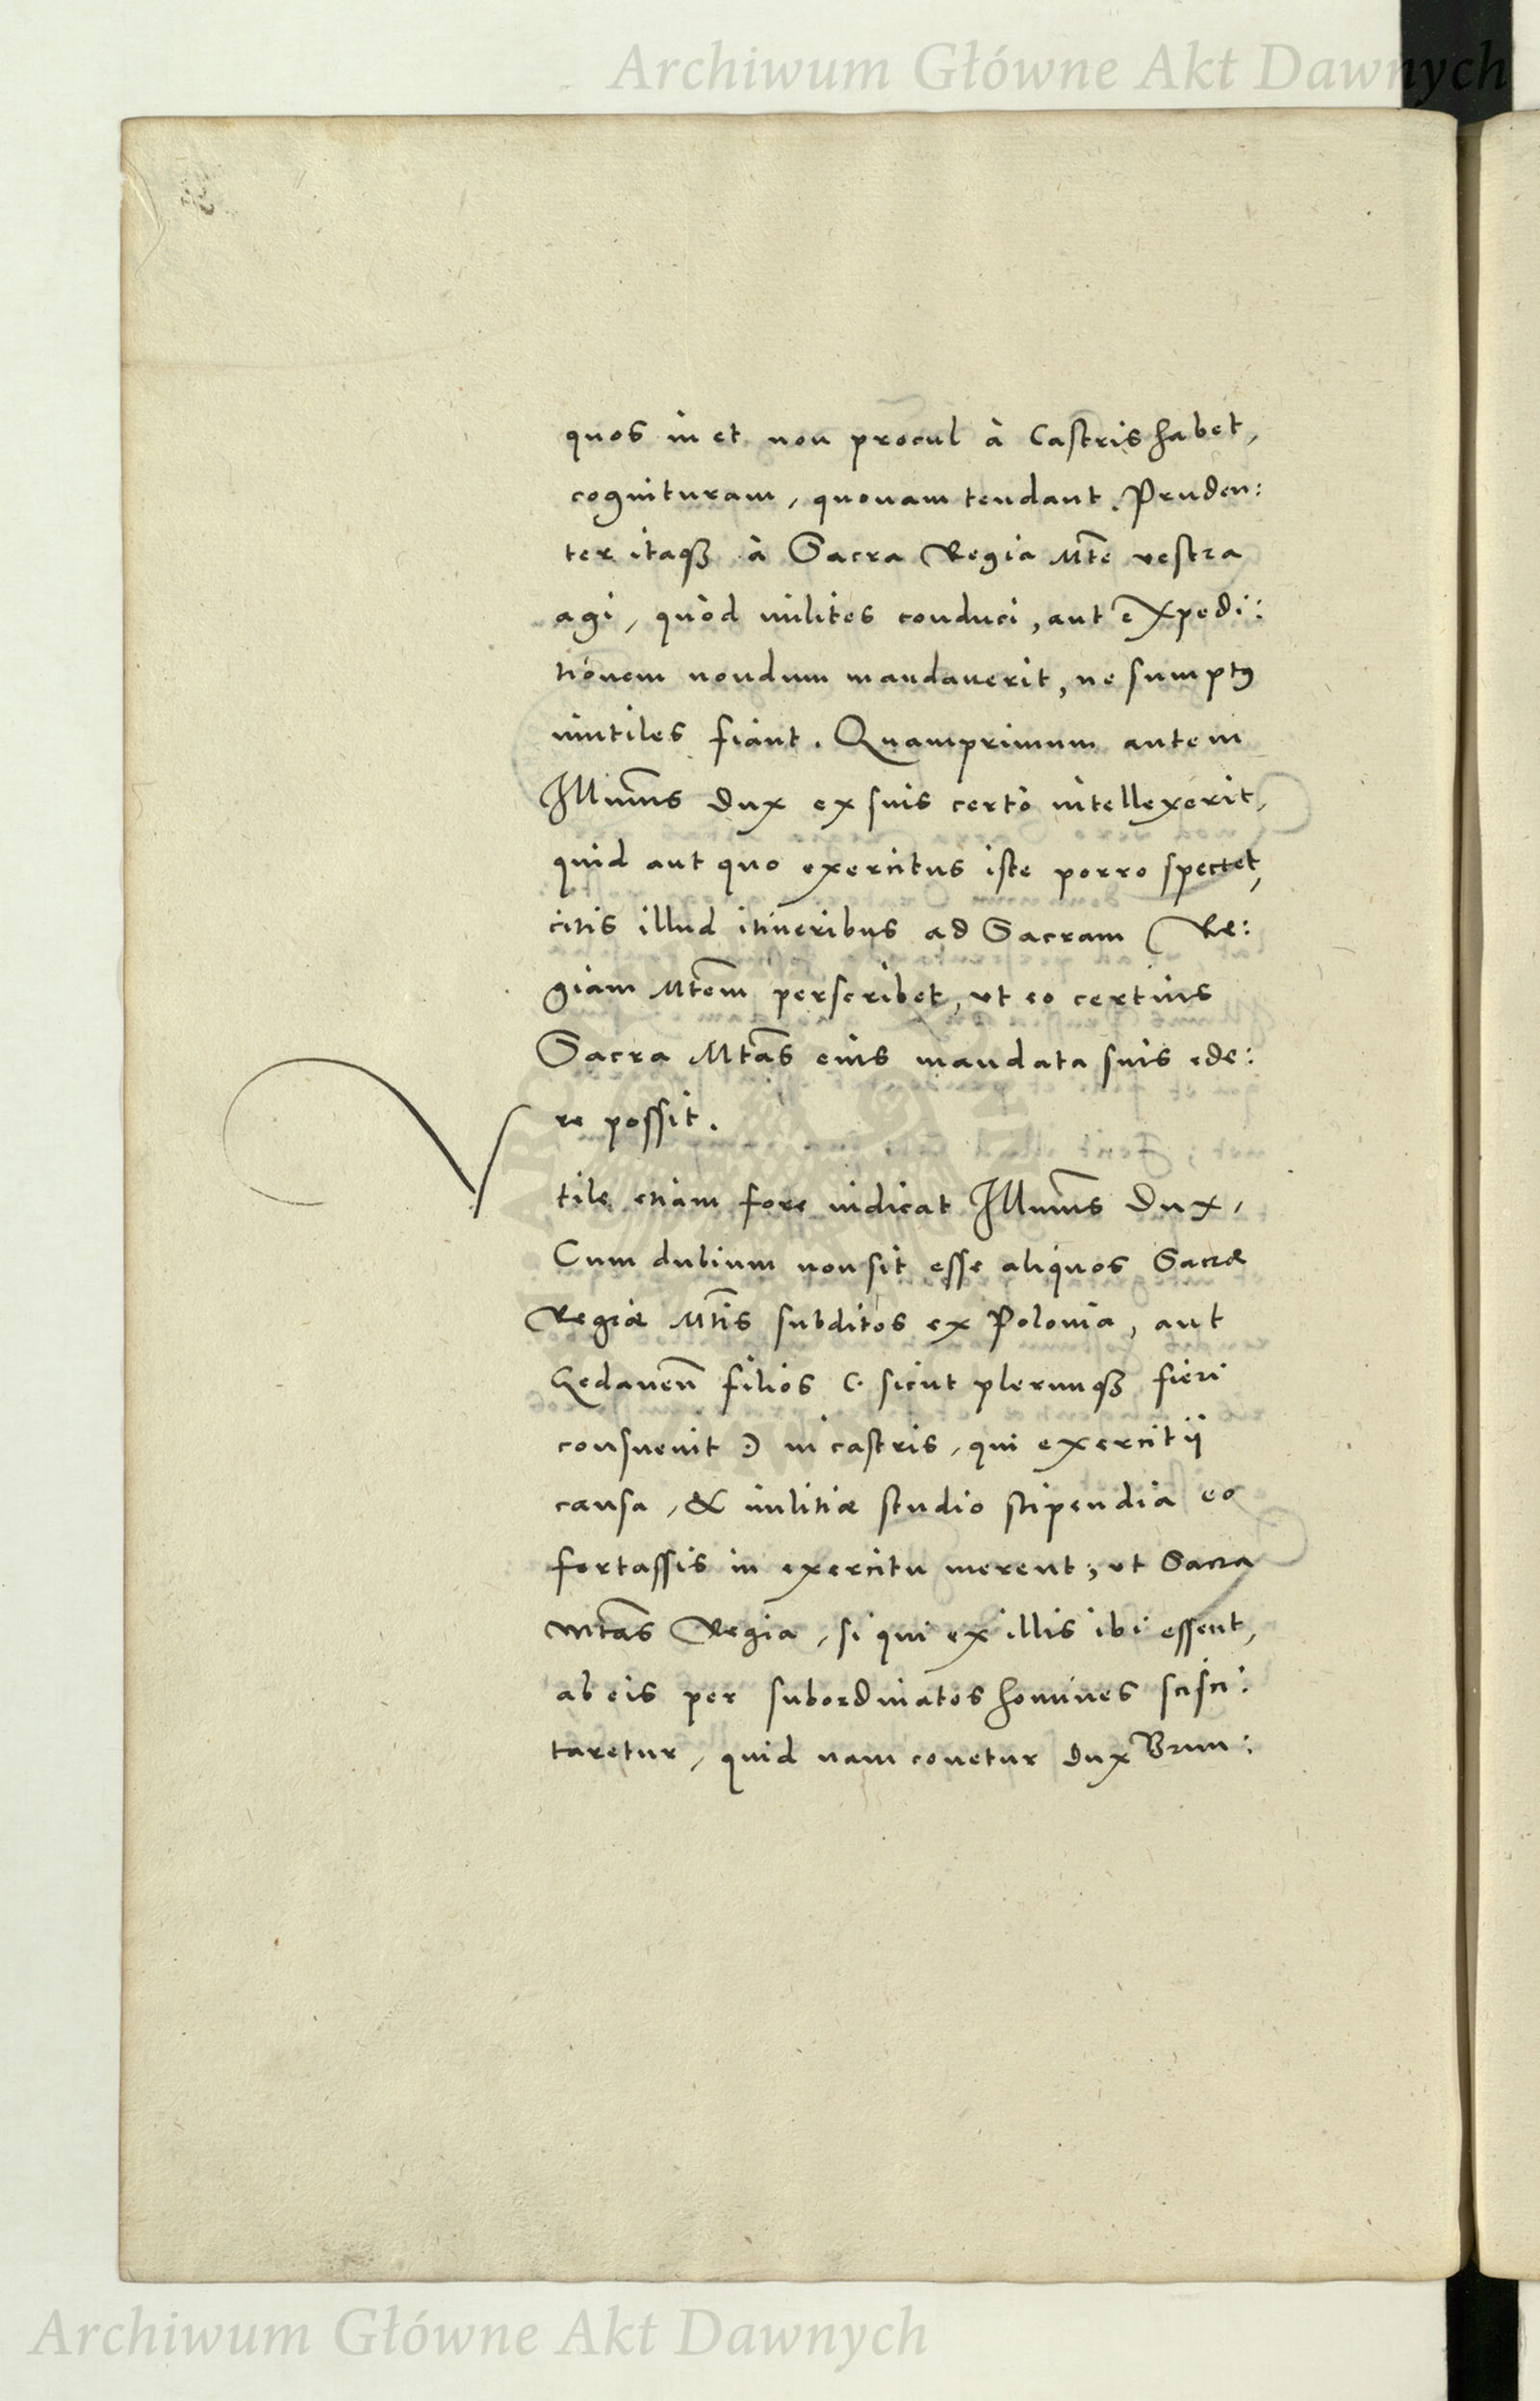 Archiwum Główne Akt Dawnych
quos in et non procul à Castris habet,
cognituram, quonam tendant. Pruden:
ter itaqꝫ à Sacra Regia Mt̃e vestra
agi, quòd milites conduci, aut expedi:
tionem nondum mandaverit, ne sumptꝰ
inutiles fiant. Quamprimum autem
Illum̃s Dux ex suis certò intellexerit,
quid aut quo exercitus iste porro spectet,
citis illud itineribus ad Sacram Re:
giam Mt̃em perscribet, ut eo certius
Sacra Mt̃as eius mandata suis ede:
re possit.
Vtile etiam fore iudicat Illum̃s Dux,
Cum dubium non sit esse aliquos Sacræ
Regiæ Mt̃is subditos ex Polonia, aut
Gedanen̄ filios (. sicut plerunqꝫ fieri
consuevit .) in castris, qui exercitij
causa, & militiæ studio stipendia eo
fortassis in exercitu merent, ut Sacra
Mt̃as Regia, si qui ex illis ibi essent,
ab eis per subordinatos homines sisci:
taretur, quid nam conetur Dux Brun:
Archiwum Główne Akt Dawnych